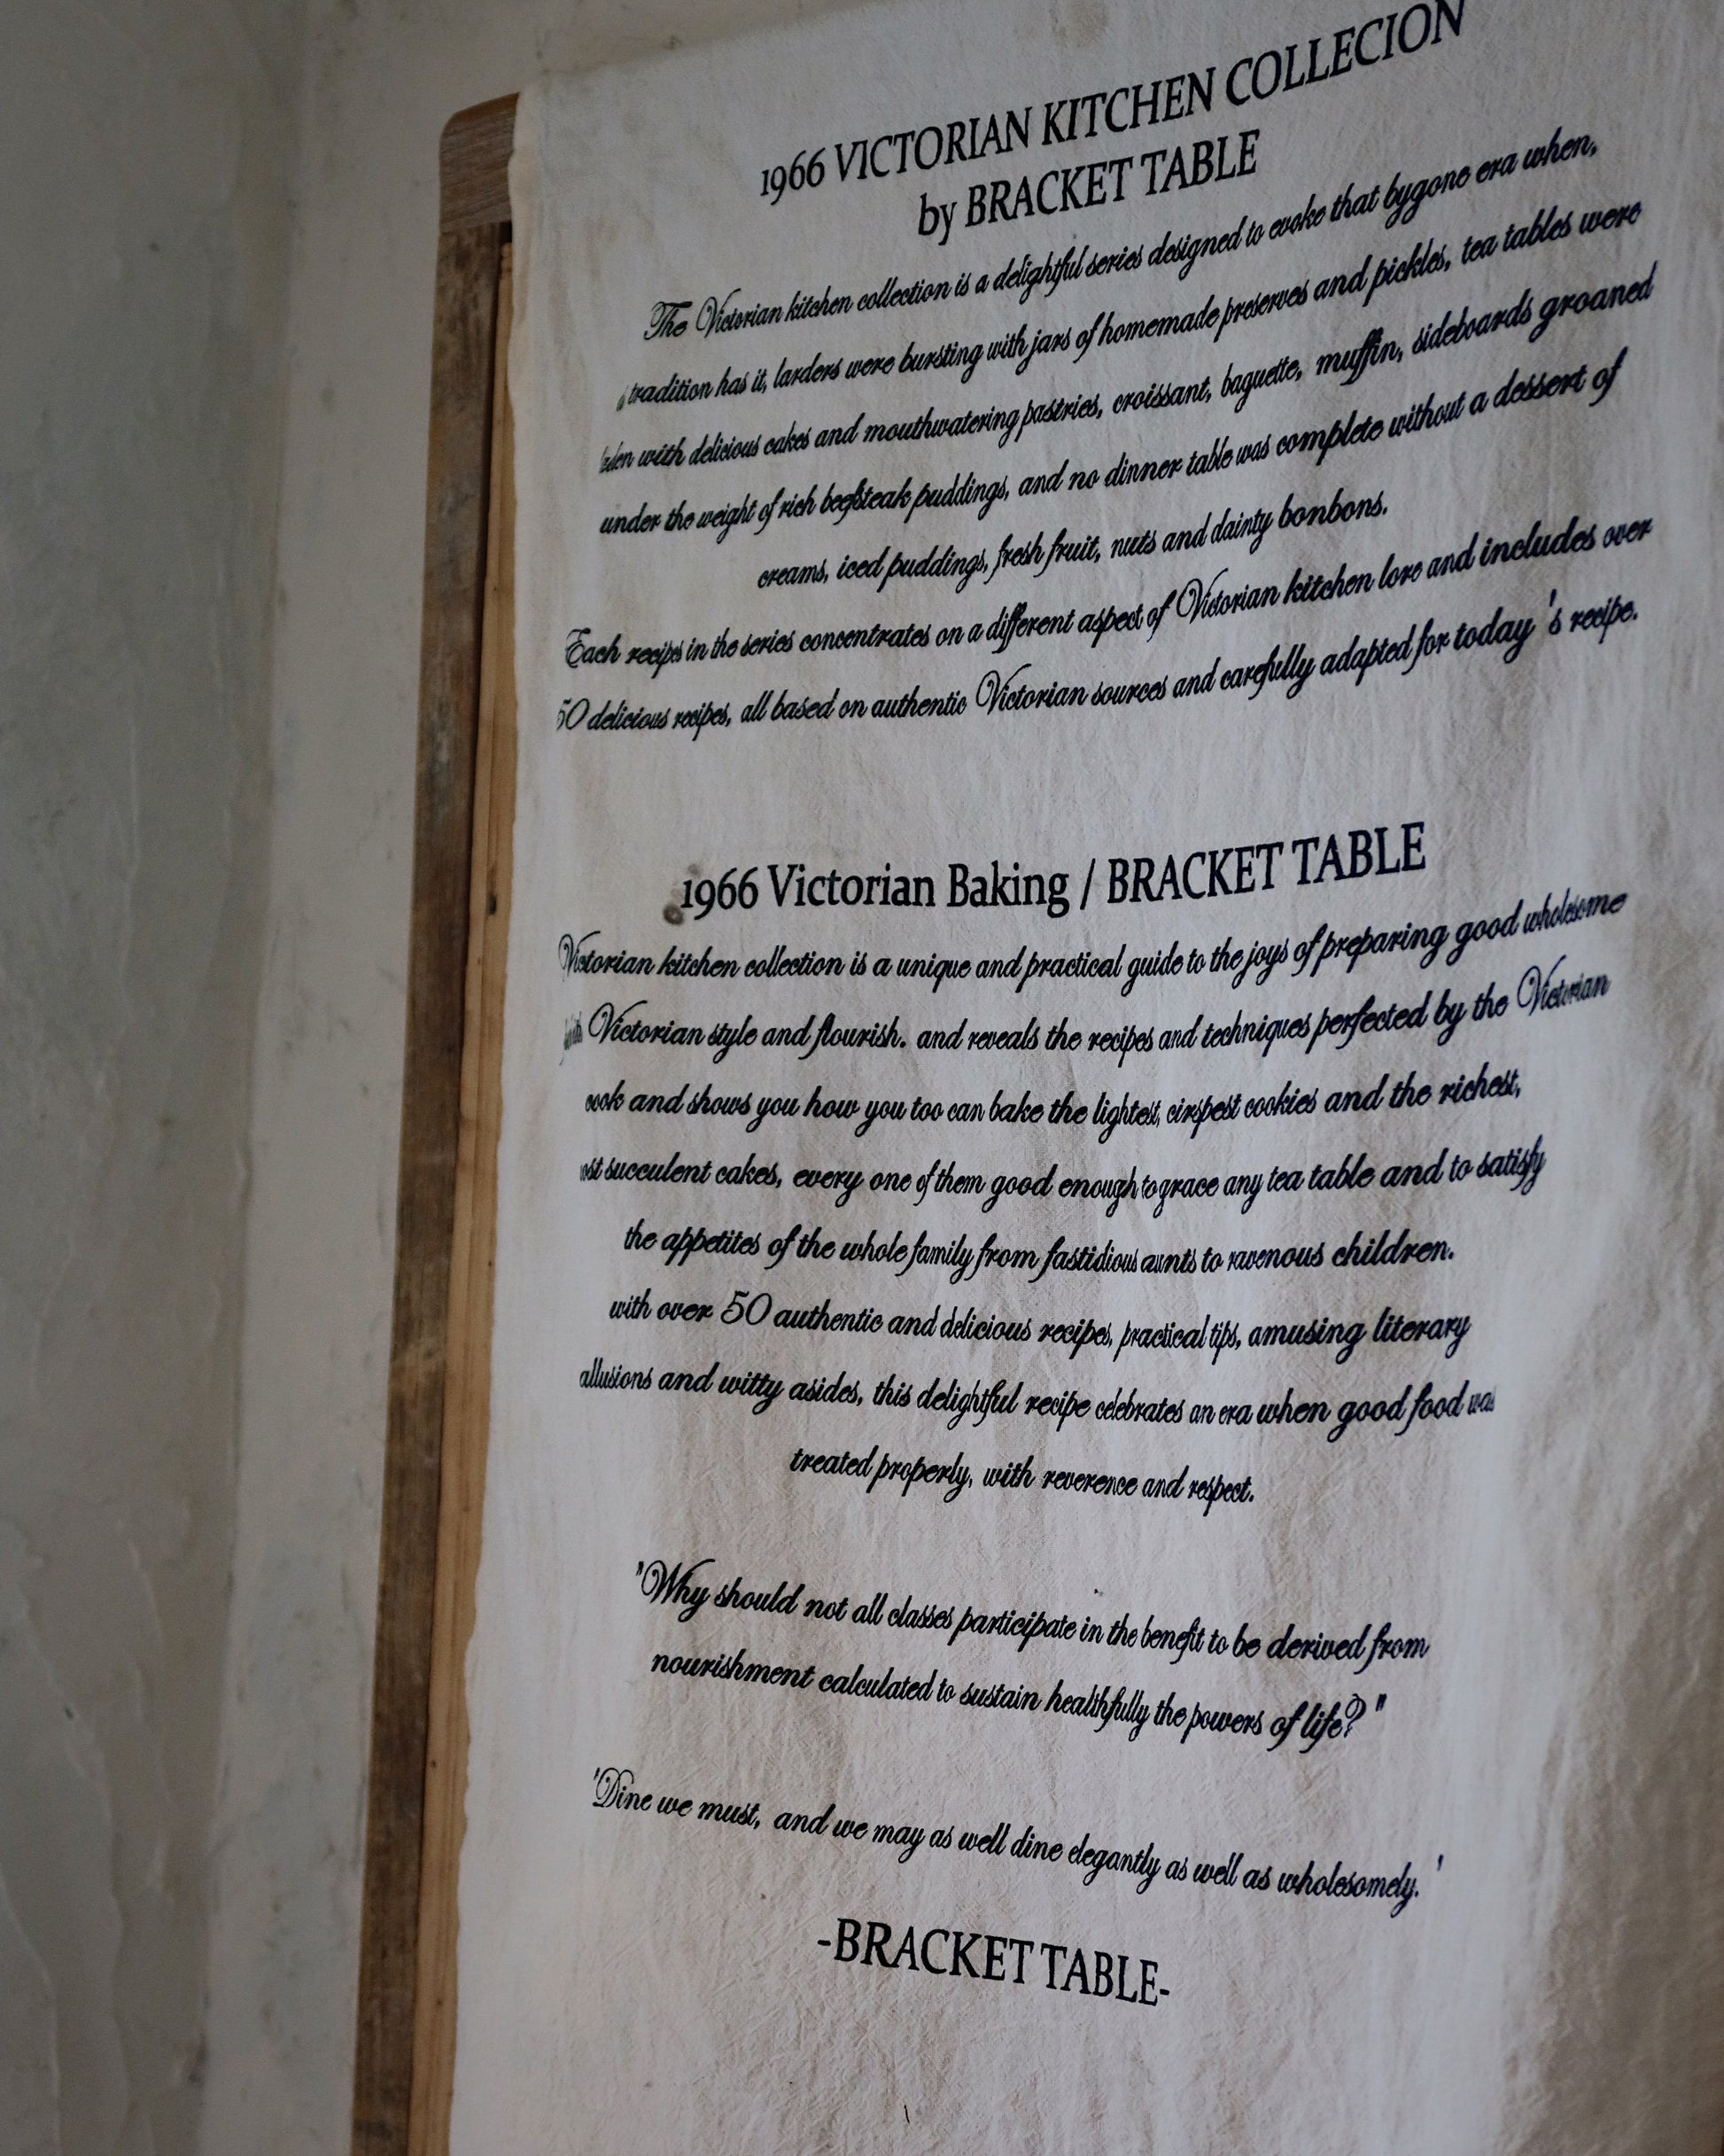 1966 VICTORIAN KITCHEN COLLECION
by BRACKET TABLE
The Victorian kitchen collection is a delightful series designed to evoke that bygone era when,
tradition has it, larders were bursting with jars of homemade preserves and pickles, tea tables were
with delicious cakes and mouthwatering pastries, croissant, baguette, muffin, sideboards groaned
under the weight of rich beefsteak puddings, and no dinner table was complete without a dessert of
creams, iced puddings, fresh fruit, nuts and dainty bonbons.
Each recipe in the series concentrates on a different aspect of Victorian kitchen lore and includes over
50 delicious recipes, all based on authentic Victorian sources and carefully adapted for today 's recipe.
1966 Victorian Baking / BRACKET TABLE
Victorian kitchen collection is a unique and practical guide to the joys of preparing good wholesome
Victorian style and flourish. and reveals the recipes and techniques perfected by the Victorian
cook and shows you how you too can bake the lightest, cirspest cookies and the richest,
ost succulent cakes, every one of them good enough to grace any tea table and to satisfy
the appetites of the whole family from fastidious aunts to ravenous children.
with over 50 authentic and delicious recipes, practical tips, amusing literary
allusions and witty asides, this delightful recipe celebrates an era when good food was
treated properly, with reverence and respect.
"Why should not all classes participate in the benefit to be derived from
nourishment calculated to sustain healthfully the powers of life? "
'Dine we must, and we may as well dine elegantly as well as wholesomely. '
-BRACKET TABLE-